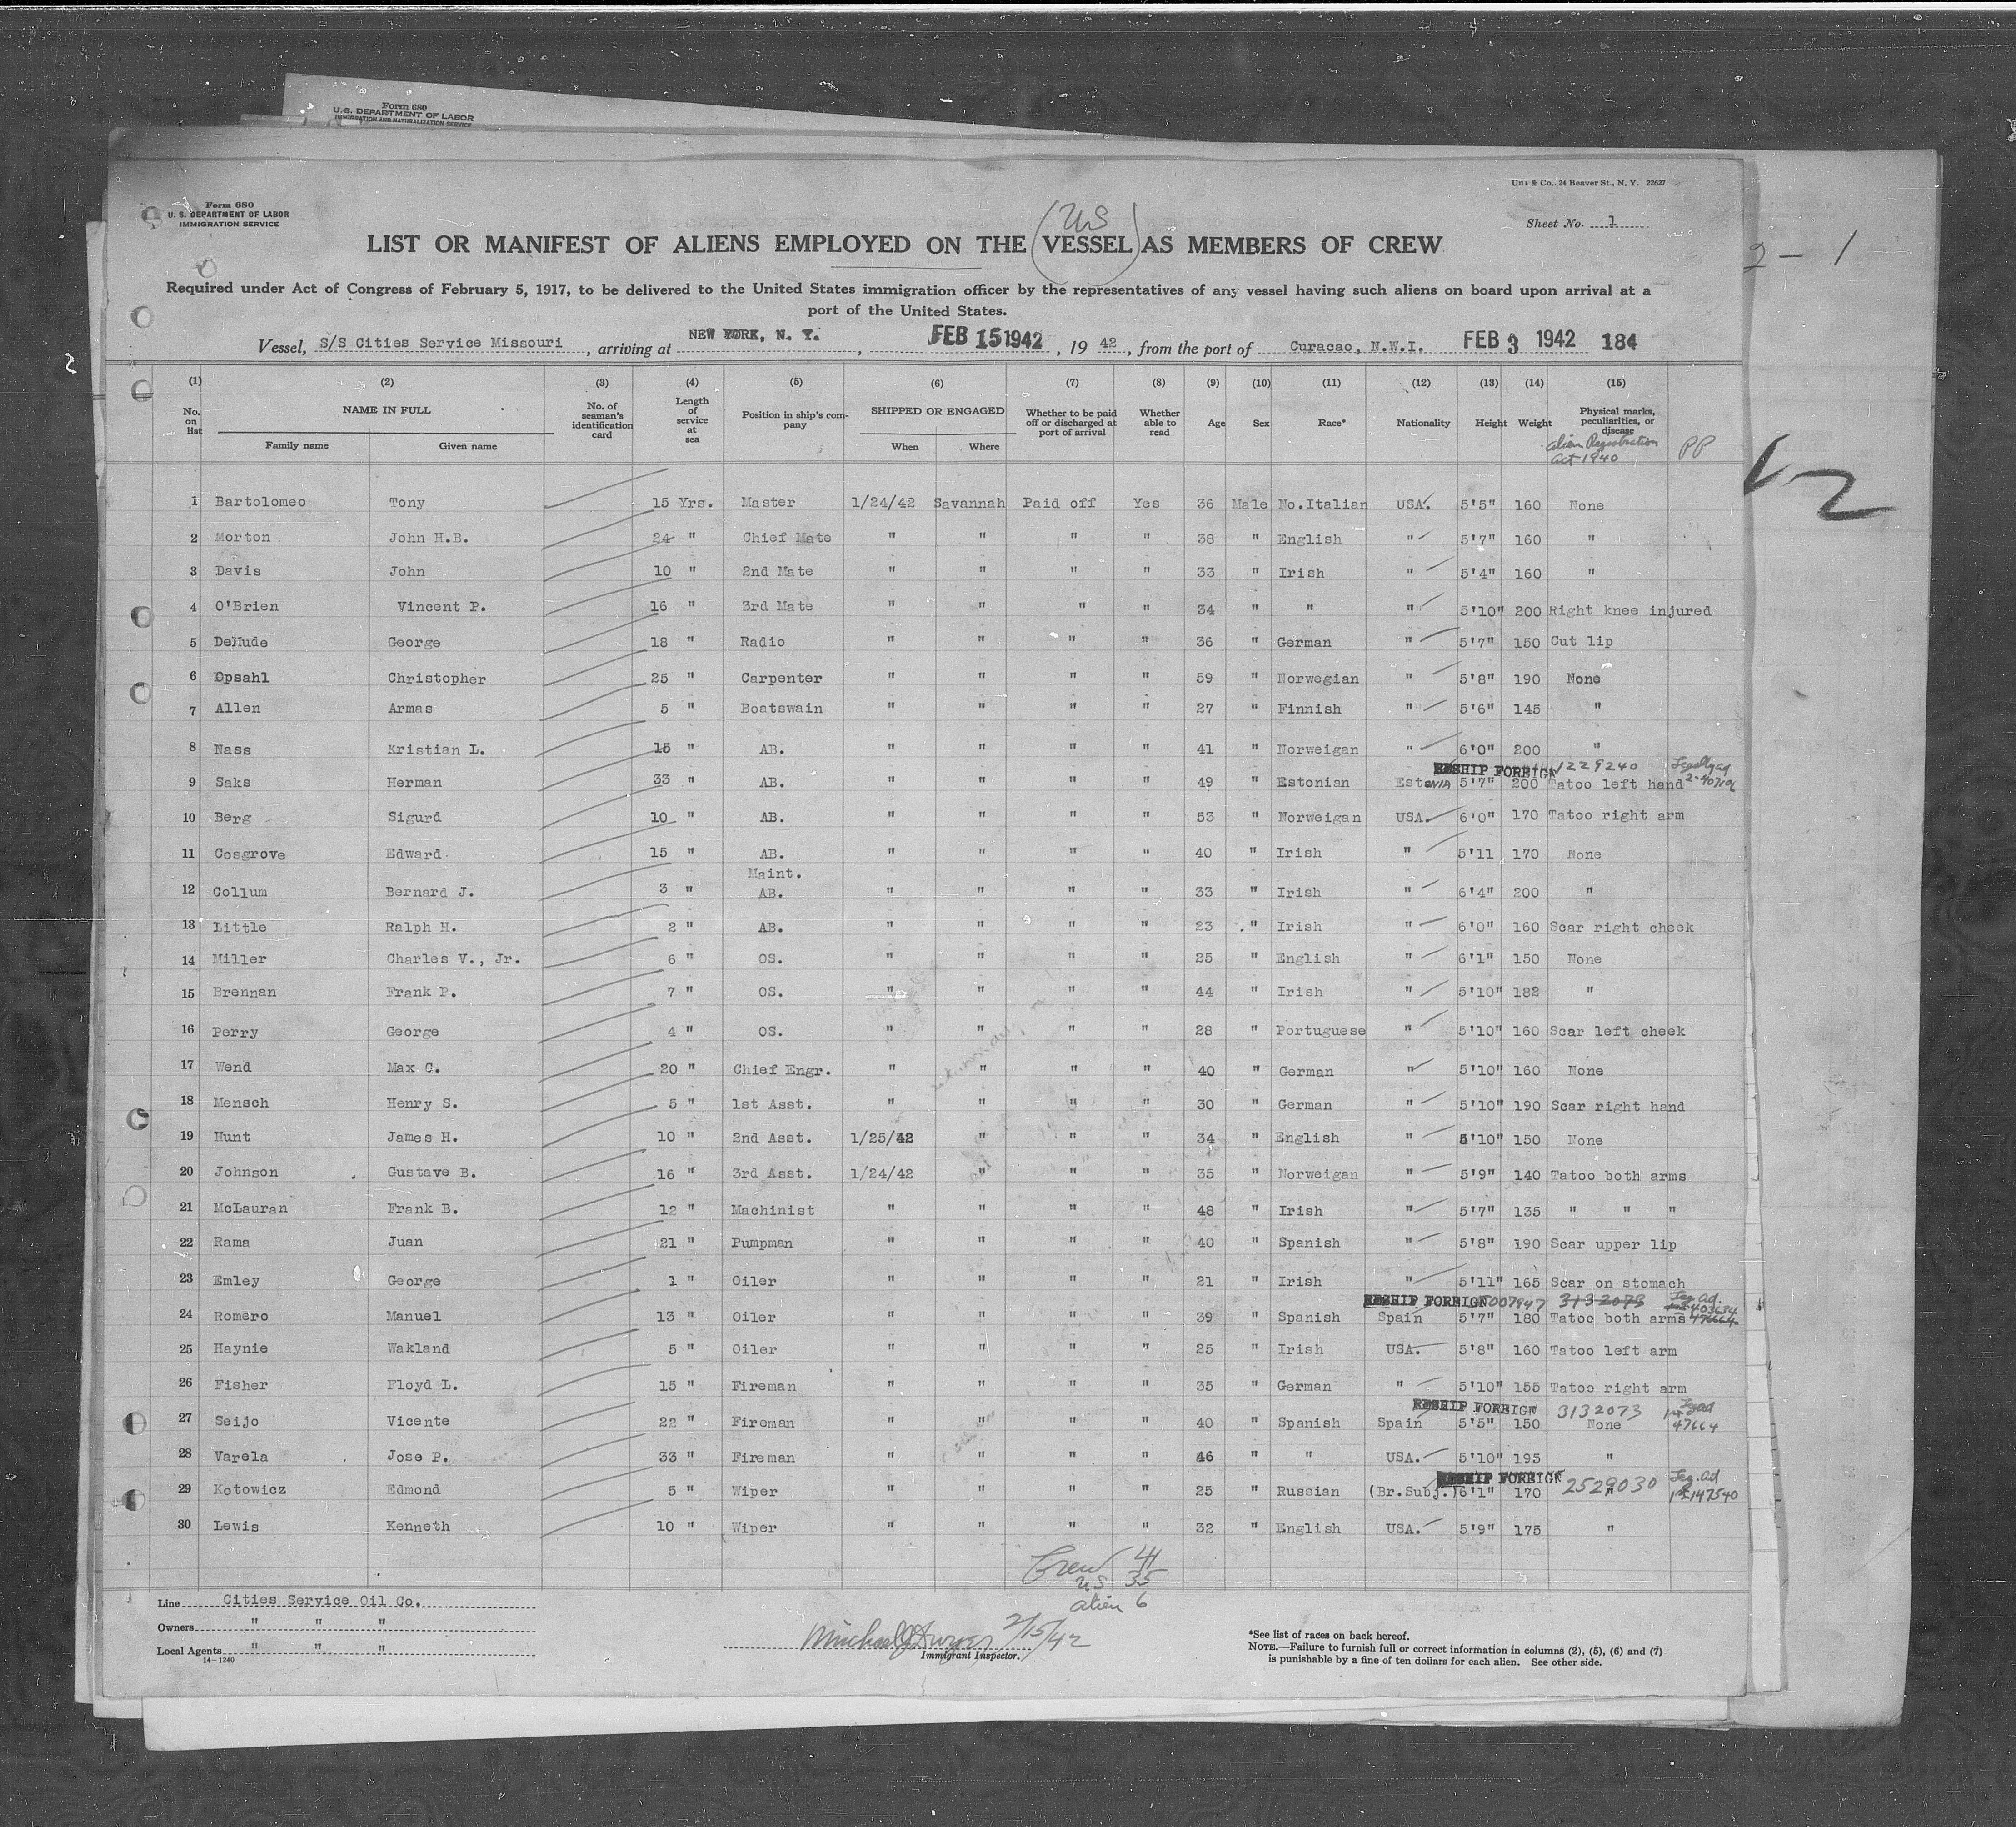 Form 680
U.S. DEPARTMENT OF LABOR
IMMIGRATION AND NATURALIZATION SERVICE
& Co., 24 Beaver St., N. Y. 22627
Form 680
U. S. DEPARTMENT OF LABOR
IMMIGRATION SERVICE
Sheet No. 1
US
LIST OR MANIFEST OF ALIENS EMPLOYED ON THE VESSEL AS MEMBERS OF CREW
2 - 1
Required under Act of Congress of February 5, 1917, to be delivered to the United States immigration officer by the representatives of any vessel having such aliens on board upon arrival at a
port of the United States.
Vessel, S/S Cities Service Missouri, arriving at NEW YORK, N. Y., FEB 15 1942, 19 42, from the port of Curacao, N.W.I. FEB 3 1942 184
(1) (2) (3) (4) (5) (6) (7) (8) (9) (10) (11) (12) (13) (14) (15)
No. on list NAME IN FULL Family name Given name No. of seaman's identification card Length of service at sea Position in ship's company SHIPPED OR ENGAGED When Where Whether to be paid off or discharged at port of arrival Whether able to read Age Sex Race* Nationality Height Weight Physical marks, peculiarities, or disease
Alien Registration Act 1940 PP
1 Bartolomeo Tony 15 Yrs. Master 1/24/42 Savannah Paid off Yes 36 Male No.Italian USA. 5'5" 160 None
2 Morton John H.B. 24 " Chief Mate " " " " 38 " English " 5'7" 160 "
3 Davis John 10 " 2nd Mate " " " " 33 " Irish " 5'4" 160 "
4 O'Brien Vincent P. 16 " 3rd Mate " " " " 34 " " " 5'10" 200 Right knee injured
5 DeHude George 18 " Radio " " " " 36 " German " 5'7" 150 Cut lip
6 Opsahl Christopher 25 " Carpenter " " " " 59 " Norwegian " 5'8" 190 None
7 Allen Armas 5 " Boatswain " " " " 27 " Finnish " 5'6" 145 "
8 Nass Kristian L. 15 " AB. " " " " 41 " Norweigan " 6'0" 200 "
RESHIP FOREIGN 1229240
9 Saks Herman 33 " AB. " " " " 49 " Estonian Estonia 5'7" 200 Tatoo left hand
10 Berg Sigurd 10 " AB. " " " " 53 " Norweigan USA. 6'0" 170 Tatoo right arm
11 Cosgrove Edward 15 " AB. " " " " 40 " Irish " 5'11 170 None
12 Collum Bernard J. 3 " Maint. AB. " " " " 33 " Irish " 6'4" 200 "
13 Little Ralph H. 2 " AB. " " " " 23 " Irish " 6'0" 160 Scar right cheek
14 Miller Charles V., Jr. 6 " OS. " " " " 25 " English " 6'1" 150 None
15 Brennan Frank P. 7 " OS. " " " " 44 " Irish " 5'10" 182 "
16 Perry George 4 " OS. " " " " 28 " Portuguese " 5'10" 160 Scar left cheek
17 Wend Max C. 20 " Chief Engr. " " " " 40 " German " 5'10" 160 None
18 Mensch Henry S. 5 " 1st Asst. " " " " 30 " German " 5'10" 190 Scar right hand
19 Hunt James H. 10 " 2nd Asst. 1/25/42 " " " 34 " English " 5'10" 150 None
20 Johnson Gustave B. 16 " 3rd Asst. 1/24/42 " " " 35 " Norweigan " 5'9" 140 Tatoo both arms
21 McLauran Frank B. 12 " Machinist " " " " 48 " Irish " 5'7" 135 " " "
22 Rama Juan 21 " Pumpman " " " " 40 " Spanish " 5'8" 190 Scar upper lip
23 Emley George 1 " Oiler " " " " 21 " Irish " 5'11" 165 Scar on stomach
RESHIP FOREIGN 5007947 3132073 Leg ad.
24 Romero Manuel 13 " Oiler " " " " 39 " Spanish Spain 5'7" 180 Tatoo both arms 47664
25 Haynie Wakland 5 " Oiler " " " " 25 " Irish USA. 5'8" 160 Tatoo left arm
26 Fisher Floyd L. 15 " Fireman " " " " 35 " German " 5'10" 155 Tatoo right arm
RESHIP FOREIGN 3132073 Leg ad
27 Seijo Vicente 22 " Fireman " " " " 40 " Spanish Spain 5'5" 150 None 47664
28 Varela Jose P. 33 " Fireman " " " " 46 " " USA. 5'10" 195 "
RESHIP FOREIGN 2529030 Leg. ad
29 Kotowicz Edmond 5 " Wiper " " " " 25 " Russian (Br.Subj.) 6'1" 170 " 147540
30 Lewis Kenneth 10 " Wiper " " " " 32 " English USA. 5'9" 175 "
Crew 41
U.S. 35
alien 6
Line Cities Service Oil Co.
Owners " " "
Local Agents " " "
14-1240
Michael J Dwyer 2/15/42
Immigrant Inspector.
*See list of races on back hereof.
NOTE.—Failure to furnish full or correct information in columns (2), (5), (6) and (7)
is punishable by a fine of ten dollars for each alien. See other side.